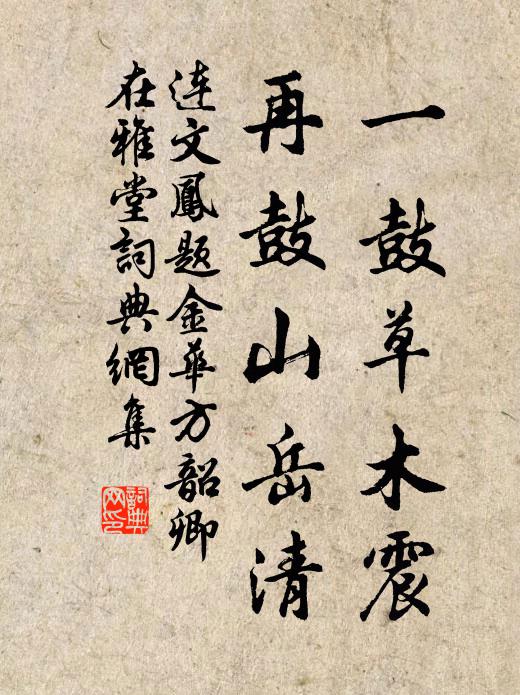 一鼓草木震
再鼓山岳清
连文鳳题金華方韶卿
在雅堂詞典網集
詞典网印